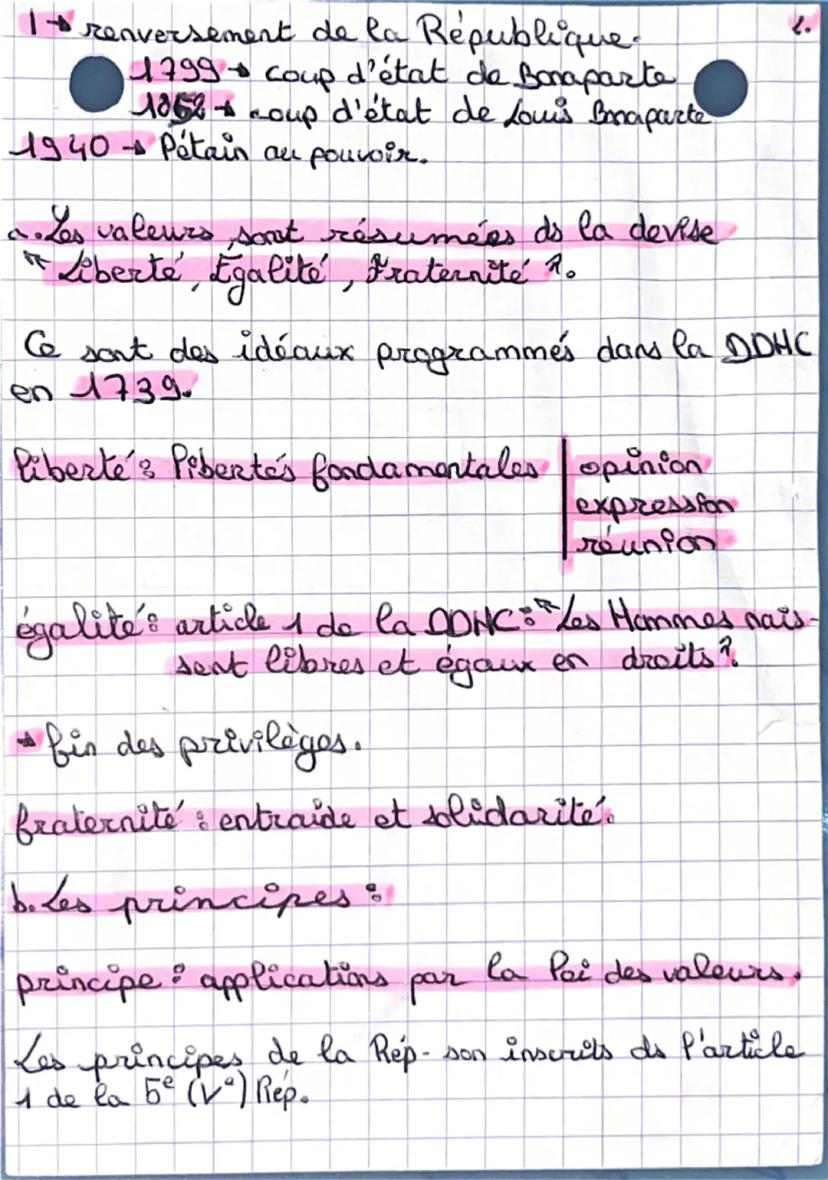 1 → renversement de la République. 2.
1799 → coup d'état de Bonaparte
1852 → coup d'état de Louis Bonaparte
1940 → Pétain au pouvoir.
a. Les valeurs sont résumées ds la devise
" Liberté, Égalité, Fraternité ".
Ce sont des idéaux programmés dans la DDHC
en 1739.
liberté : libertés fondamentales | opinion
expression
réunion
égalité : article 1 de la DDHC : " Les Hommes nais-
sent libres et égaux en droits ".
→ fin des privilèges.
fraternité : entraide et solidarité.
b. Les principes :
principe : applications par la loi des valeurs.
Les principes de la Rép. son inscrits ds l'article
1 de la 5e (Ve) Rép.